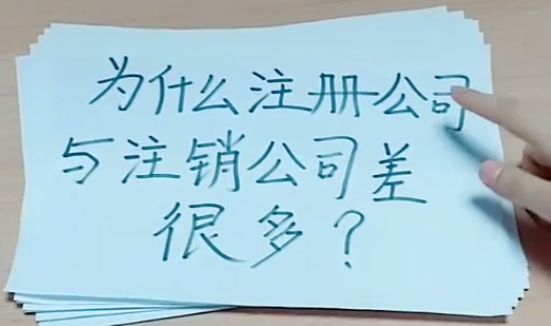 为什么注册公司
与注销公司差
很多？